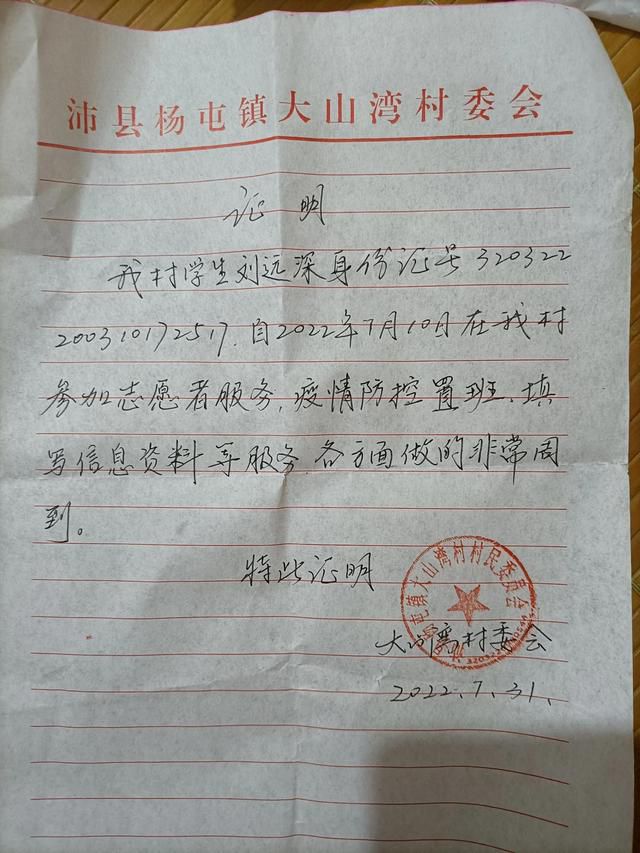 沛县杨屯镇大山湾村委会
证明
我村学生刘远深身份证号320322
200310172517.自2022年7月10日在我村
参加志愿者服务,疫情防控置班、填
写信息资料等服务.各方面做的非常周
到。
特此证明
屯镇大山湾村村民委员会
大山湾村委会
2022.7.31.